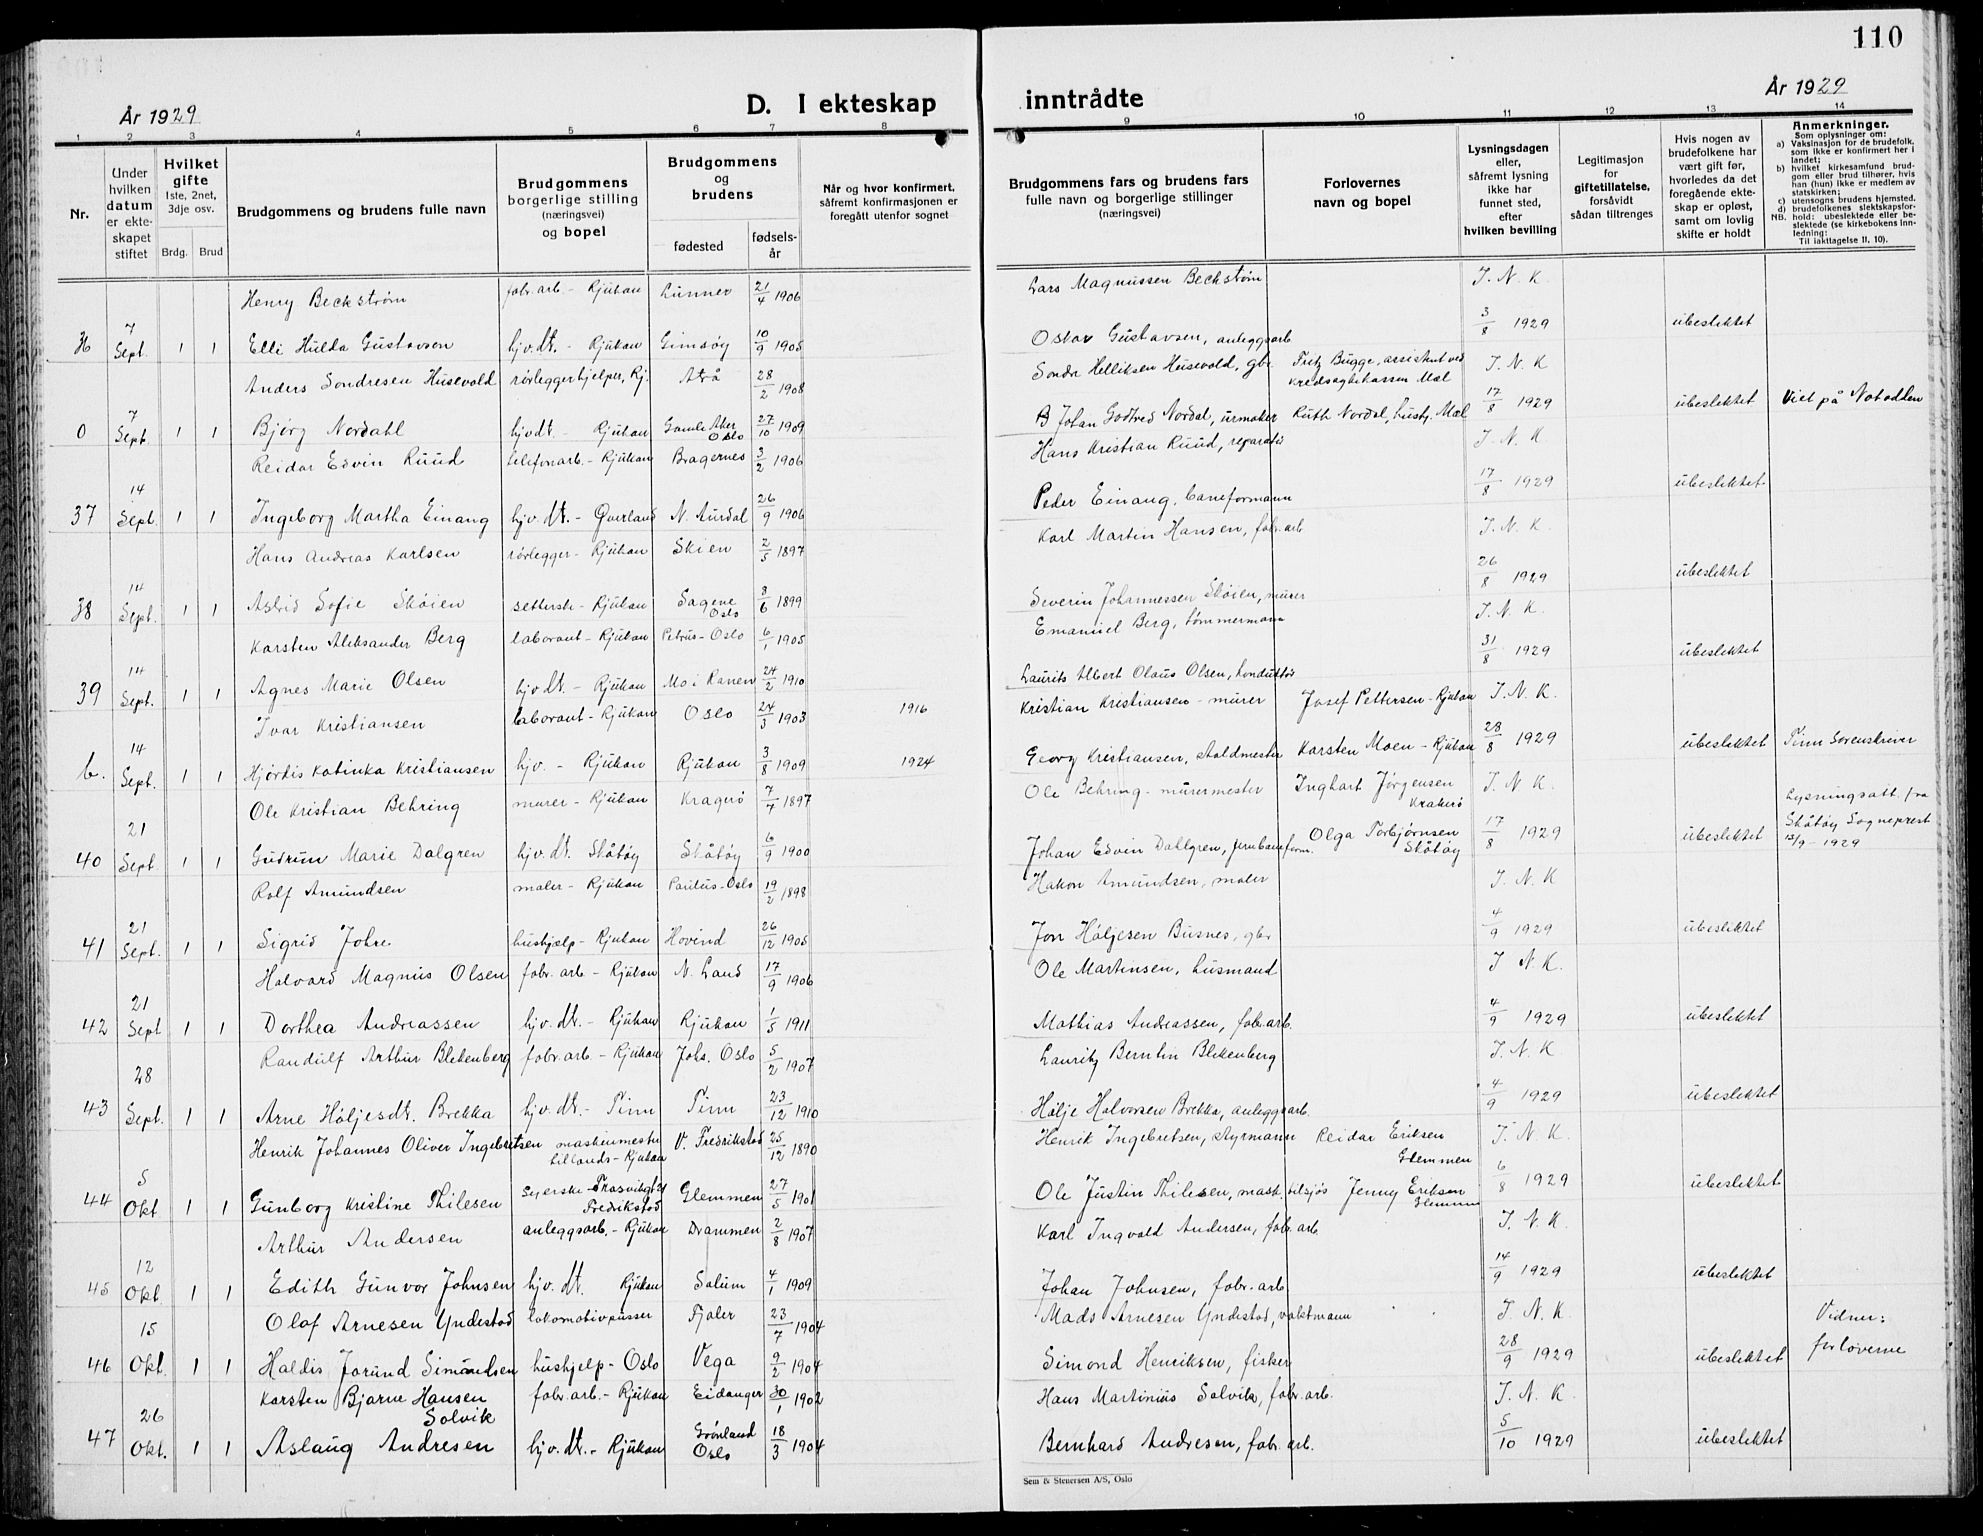 110
År 1929
D. I ekteskap inntrådte
År 1929
1 2 3 4 5 6 7 8 9 10 11 12 13 14
Nr.
Under hvilken datum er ekteskapet stiftet
Hvilket gifte
1ste, 2net, 3dje osv.
Brdg. Brud
Brudgommens og brudens fulle navn
Brudgommens borgerlige stilling (næringsvei) og bopel
Brudgommens og brudens
fødested
fødselsår
Når og hvor konfirmert, såfremt konfirmasjonen er foregått utenfor sognet
Brudgommens fars og brudens fars fulle navn og borgerlige stillinger (næringsvei)
Forlovernes navn og bopel
Lysningsdagen eller, såfremt lysning ikke har funnet sted, efter hvilken bevilling
Legitimasjon for giftetillatelse, forsåvidt sådan tiltrenges
Hvis nogen av brudefolkene har vært gift før, hvorledes da det foregående ekteskap er opløst, samt om lovlig skifte er holdt
Anmerkninger.
Som oplysninger om:
a) Vaksinasjon for de brudefolk, som ikke er konfirmert her i landet;
b) hvilket kirkesamfund brudgom eller brud tilhører, hvis han (hun) ikke er medlem av statskirken;
c) utensogns brudens hjemsted.
d) brudefolkenes slektskapsforhold: ubeslektede eller beslektede (se kirkebokens innledning:
NB.
Til iakttagelse II, 10).
Henry Beckstrøm fabr.arb. - Rjukan Lunner 21/4 1906 Lars Magnussen Beckstrøm I. N. K.
36 7 Sept. 1 1 Elli Hulda Gustavsen hjv.dt. - Rjukan Gimsøy 10/9 1905 Oskar Gustavsen, anleggsarb 3/8 1929 ubeslektet
Anders Sondresen Husevold rørleggerhjelper, Rj. Atrå 28/2 1908 Sondre Helliksen Husevold, gbr. Fritz Bugge, assistent ved Kredsagbekassen Mæl I. N. K
0 7 Sept. 1 1 Bjørg Nordahl hjvdt. - Rjukan Gamle Aker Oslo 27/10 1909 B Johan Godtfred Nordal, urmaker Ruth Nordal, hustr. Mæl 17/8 1929 ubeslektet Viet på Notodden
Reidar Edvin Ruud telefonarb. - Rjukan Bragernes 3/2 1906 Hans Kristian Ruud, reparatør I. N. K
37 14 Sept. 1 1 Ingeborg Martha Einang hjv. dt. - Øverland N. Aurdal 26/9 1906 Peder Einang, baneformann 17/8 1929 ubeslektet
Hans Andreas Karlsen rørlegger - Rjukan Skien 2/5 1897 Karl Martin Hansen, fabr.arb I. N. K.
38 14 Sept. 1 1 Astrid Sofie Skøien setterske - Rjukan Sagene Oslo 8/6 1899 Severin Johannessen Skøien, murer 26/8 1929 ubeslektet
Karsten Aleksander Berg laborant - Rjukan Petrus - Oslo 6/1 1905 Emanuel Berg, tømmermann I. N. K.
39 14 Sept. 1 1 Agnes Marie Olsen hjv. dt. - Rjukan Mo i Ranen 24/2 1910 Laurits Albert Olaus Olsen, konduktør 31/8 1929 ubeslektet
Ivar Kristiansen laborant - Rjukan Oslo 24/3 1903 1916 Kristian Kristiansen - murer Josef Pettersen - Rjukan I. N. K.
b. 14 Sept. 1 1 Hjørdis Katinka Kristiansen hjv. - Rjukan Rjukan 3/8 1909 1924 Georg Kristiansen, staldmester Karsten Moen - Rjukan 28/8 1929 ubeslektet Tinn Sorenskriver
Ole Kristian Behring murer - Rjukan Kragerø 7/7 1897 Ole Behring - murermester Inghart Jørgensen Krakerø I. N K.
40 21 Sept 1 1 Gudrun Marie Dalgren hjv. dt. Skåtøy Skåtøy 6/9 1900 Johan Edvin Dahlgren, jernbaneform. Olga Torbjørnsen Skåtøy 17/8 1929 ubeslektet Lysningsatt. fra Skåtøy Sogneprest 12/9 - 1929
Rolf Amundsen maler - Rjukan Paulus - Oslo 19/2 1898 Hakon Amundsen, maler I. N. K
41 21 Sept. 1 1 Sigrid Johre hushjelp - Rjukan Hovind 26/12 1905 Jon Håljesen Busnes, gbr 4/9 1929 ubeslektet
Halvard Magnus Olsen fabr. arb - Rjukan N. Land 17/9 1906 Ole Martinsen, husmand I N. K.
42 21 Sept 1 1 Dorthea Andreassen hjv. dt. - Rjukan Rjukan 1/5 1911 Mathias Andreassen, fabr.arb. 4/9 1929 ubeslektet
Randulf Arthur Blekenberg fabr.arb - Rjukan Johs. Oslo 5/2 1907 Lauritz Berntin Blekenberg I. N. K.
43 28 Sept. 1 1 Arne Håljesdt. Brekka hjv. dt. - Tinn Tinn 23/12 1910 Hålje Halvorsen Brekka, anleggsarb. 4/9 1929 ubeslektet
Henrik Johannes Oliver Ingebretsen maskinmester - Rjukan V. Fredrikstad 25/12 1890 Henrik Ingebretsen, styrmann Reidar Eriksen Glemmen I. N. K.
44 5 Okt 1 1 Gunborg Kristine Thilesen Syerske - Fredrikstad Glemmen 27/5 1901 Ole Justin Thilesen, mask. tilsjøs Jenny Eriksen Glemmen 6/8 1929 ubeslektet
Arthur Andersen anleggsarb. - Rjukan Drammen 2/8 1907 Karl Ingvald Andersen, fabr.arb. I. N. K.
45 12 Okt. 1 1 Edith Gunvor Johnsen hjv. dt. Rjukan Solum 4/1 1909 Johan Johnsen, fabr.arb 14/9 1929 ubeslektet
Olaf Arnesen Yndestad lokomotivpusser Fjaler 23/7 1904 Mads Arnesen Yndestad, vaktmann I. N. K. Vidner:
46 15 Okt. 1 1 Haldis Jorund Simondsen hushjelp - Oslo Vega 9/2 1904 Simond Henriksen, fisker 28/9 1929 ubeslektet forloverne
Karsten Bjarne Hansen Solvik fabr.arb. - Rjukan Eidanger 30/1 1902 Hans Martinius Solvik, fabr.arb. I. N. K.
47 26 Okt. 1 1 Aslaug Andresen hjv. dt. - Rjukan Grønland Oslo 18/3 1904 Bernhard Andresen, fabr.arb. 5/10 1929 ubeslektet
Sem & Stenersen A/S, Oslo